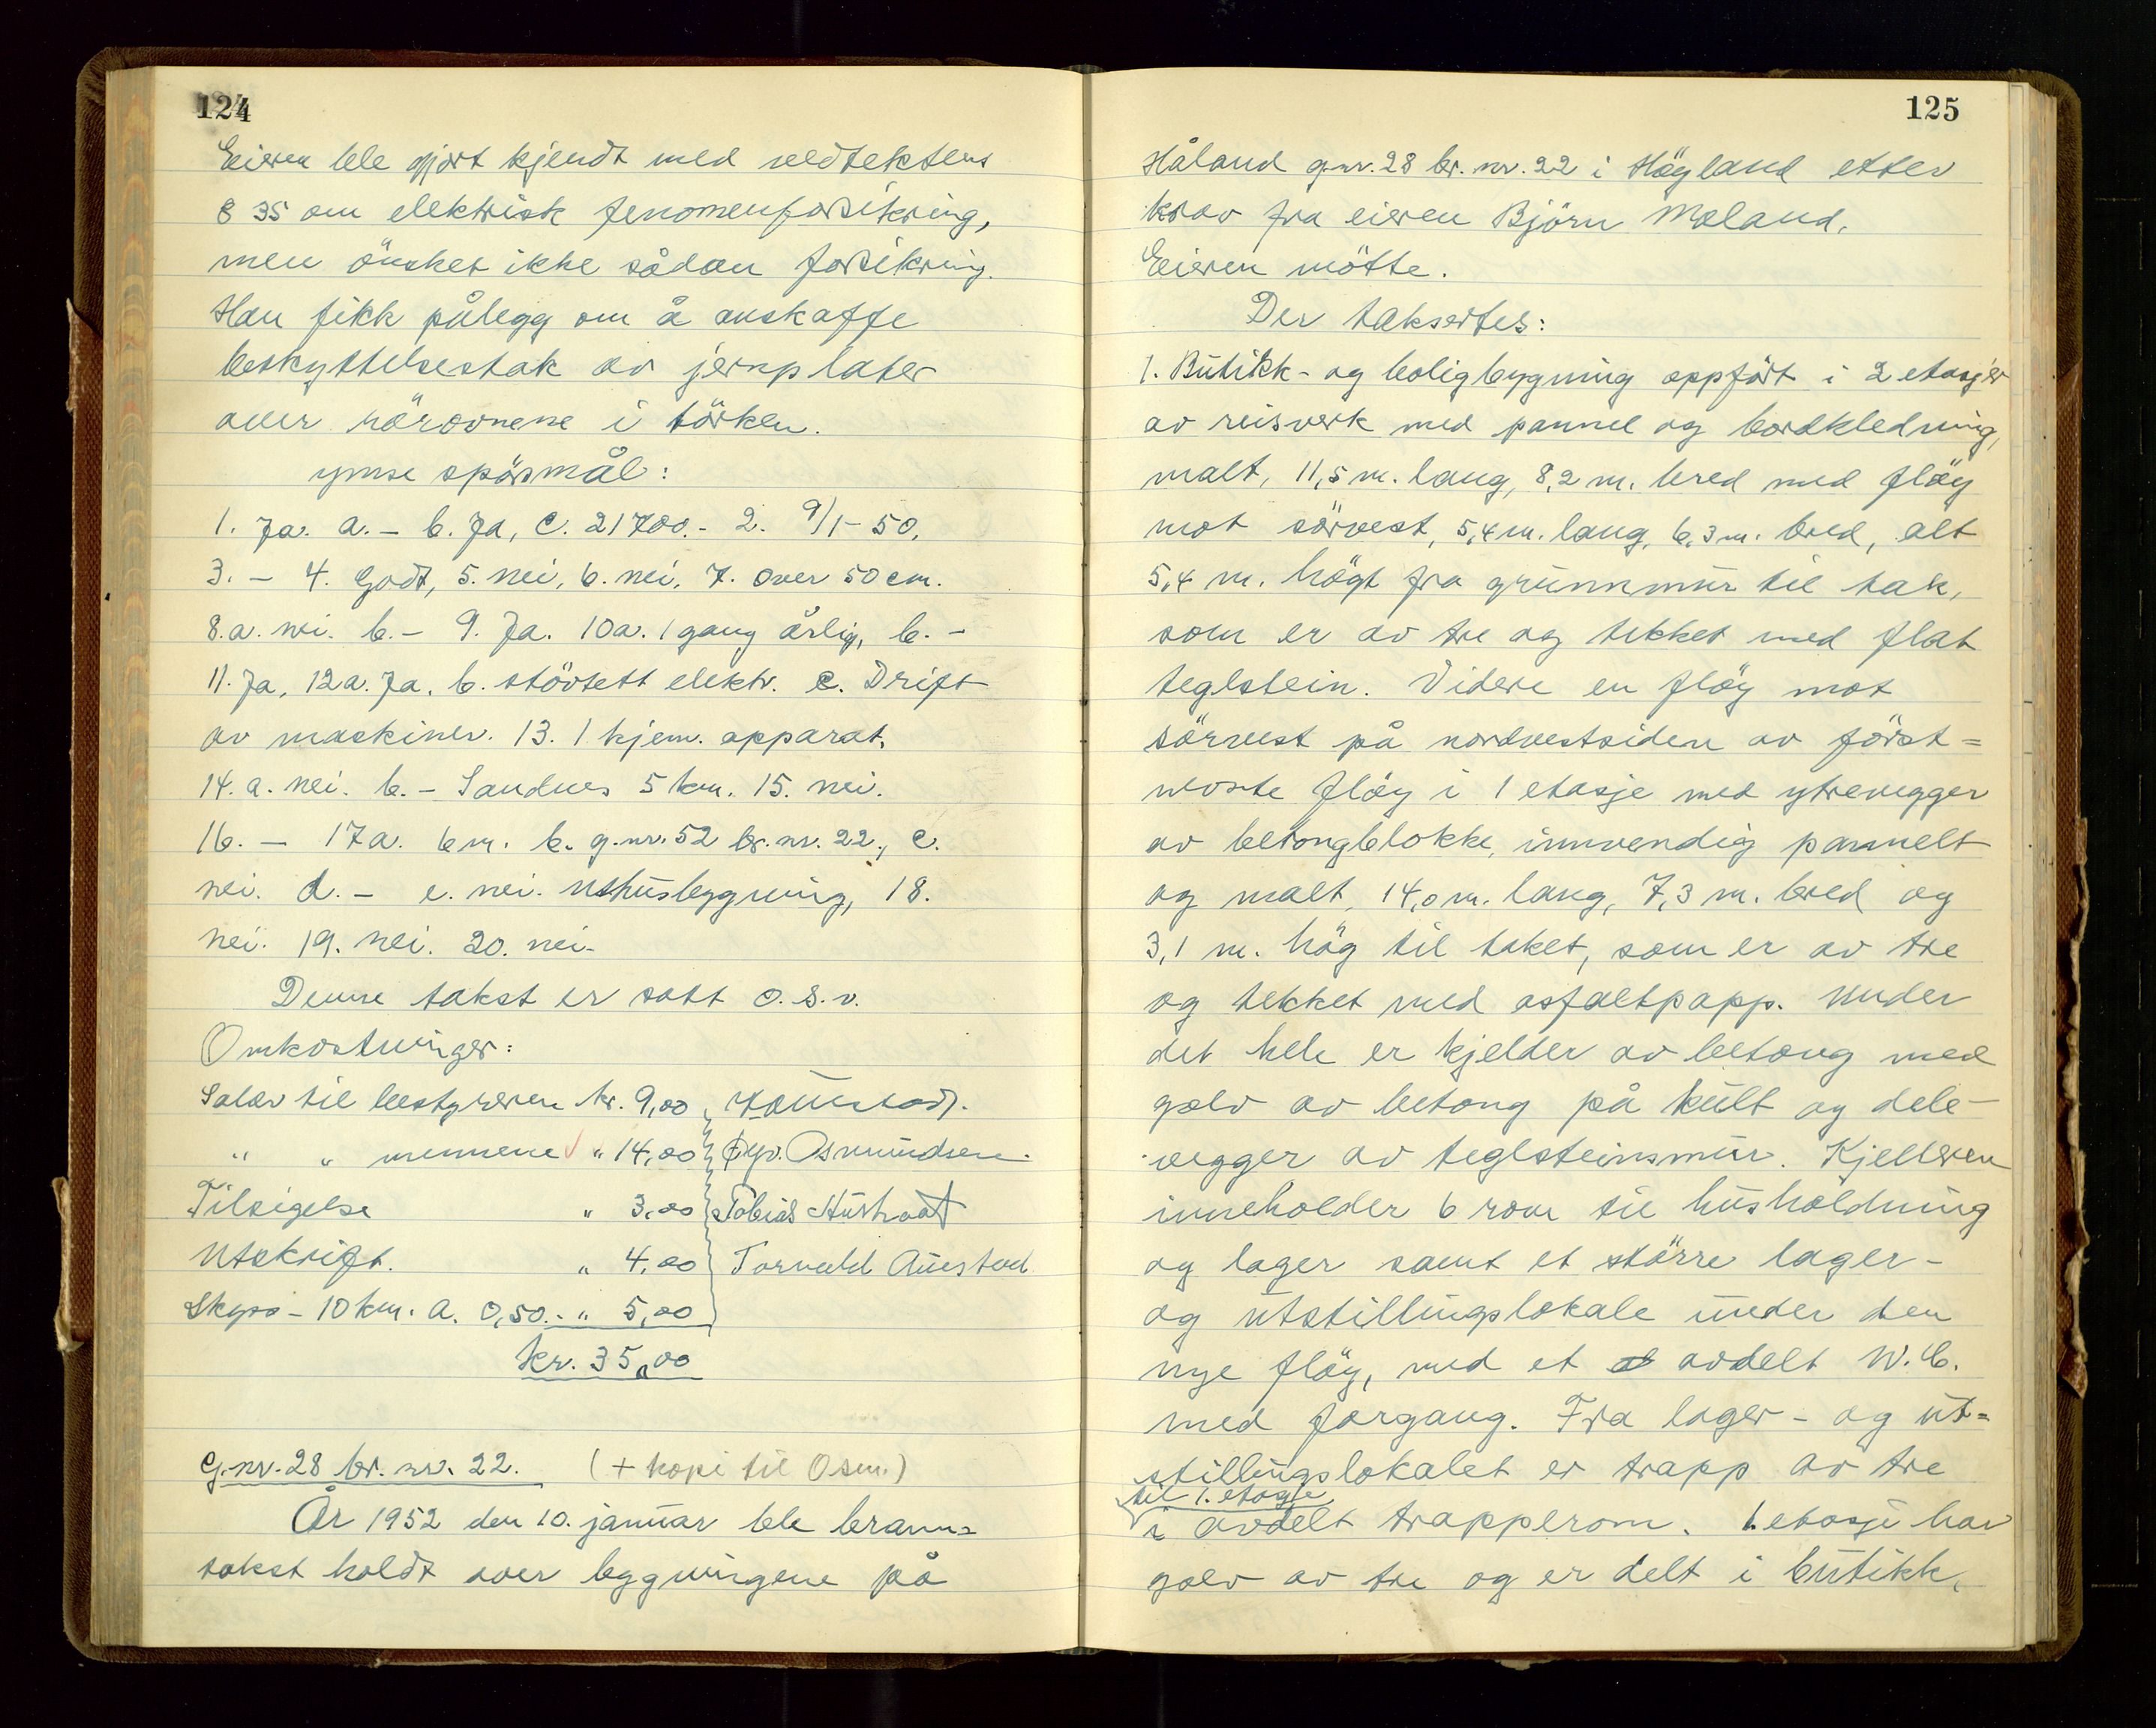 124
Eieren ble gjort kjendt med vedtektens
§ 35 om elektrisk fenomenforsikring,
men önsket ikke sådan forsikring.
Han fikk pålegg om å anskaffe
beskyttelsestak av jernplater
over rörovnene i törken.
ymse spörsmål:
1. Ja. a. - b. Ja, c. 21700.- 2. 9/1-50.
3. - 4. Godt, 5. nei, 6. nei, 7. Over 50 cm.
8.a. nei. b. - 9. Ja. 10a. 1 gang årlig, b. -
11. Ja, 12a. Ja. b. stövtett elektr. c. Drift
av maskiner. 13. 1 kjem. apparat.
14. a. nei. b. - Sandnes 5 km. 15. nei.
16. - 17a. 6 m. b. g.nr. 52 br.nr. 22., c.
nei. d. - e. nei. Uthusbygning, 18.
nei. 19. nei. 20. nei.
Denne takst er satt o.s.v.
Omkostninger:
Salær til bestyreren kr. 9,00
" " mennene " 14,00 Osmundsen
Tilsigelse " 3,00 Tobias
Utskrift. " 4,00 Torvald Auestad
Skyss - 10 km. a. 0,50.- " 5,00
kr. 35,00
G.nr. 28 br. nr. 22. (+ kopi til Osm.)
År 1952 den 10. januar ble brann=
takst holdt over bygningene på
125
Håland g.nr. 28 br. nr. 22 i Högland etter
krav fra eieren Björn Moland.
Eieren mötte.
Der taksertes:
1. Butikk- og boligbygning oppfört i 2 etasjer
av reisverk med pannel og bordkledning,
malt, 11,5 m. lang, 8,2 m. bred med flöy
mot sörvest, 5,4 m. lang, 6,3 m. bred, alt
5,4 m. högt fra grunnmur til tak,
som er av tre og tekket med flat
teglstein. Videre en flöy mot
sörvest på nordvestsiden av först=
nevnte flöy i 1 etasje med yttrevegger
av betongblokke, innvendig pannelt
og malt, 14,0 m. lang, 7,3 m. bred og
3,1 m. hög til taket, som er av tre
og tekket med asfaltpapp. Under
det hele er kjelder av betong med
golv av betong på kult og dele-
vegger av teglsteinsmur. Kjelleren
inneholder 6 rom til husholdning
og lager samt et större lager-
og utstillingslokale under den
nye flöy, med et avdelt W.C.
med forgang. Fra lager- og ut=
stillingslokalet er trapp av tre
til 1. etasje
i avdelt trapperom. 1. etasje har
golv av tre og er delt i butikk,